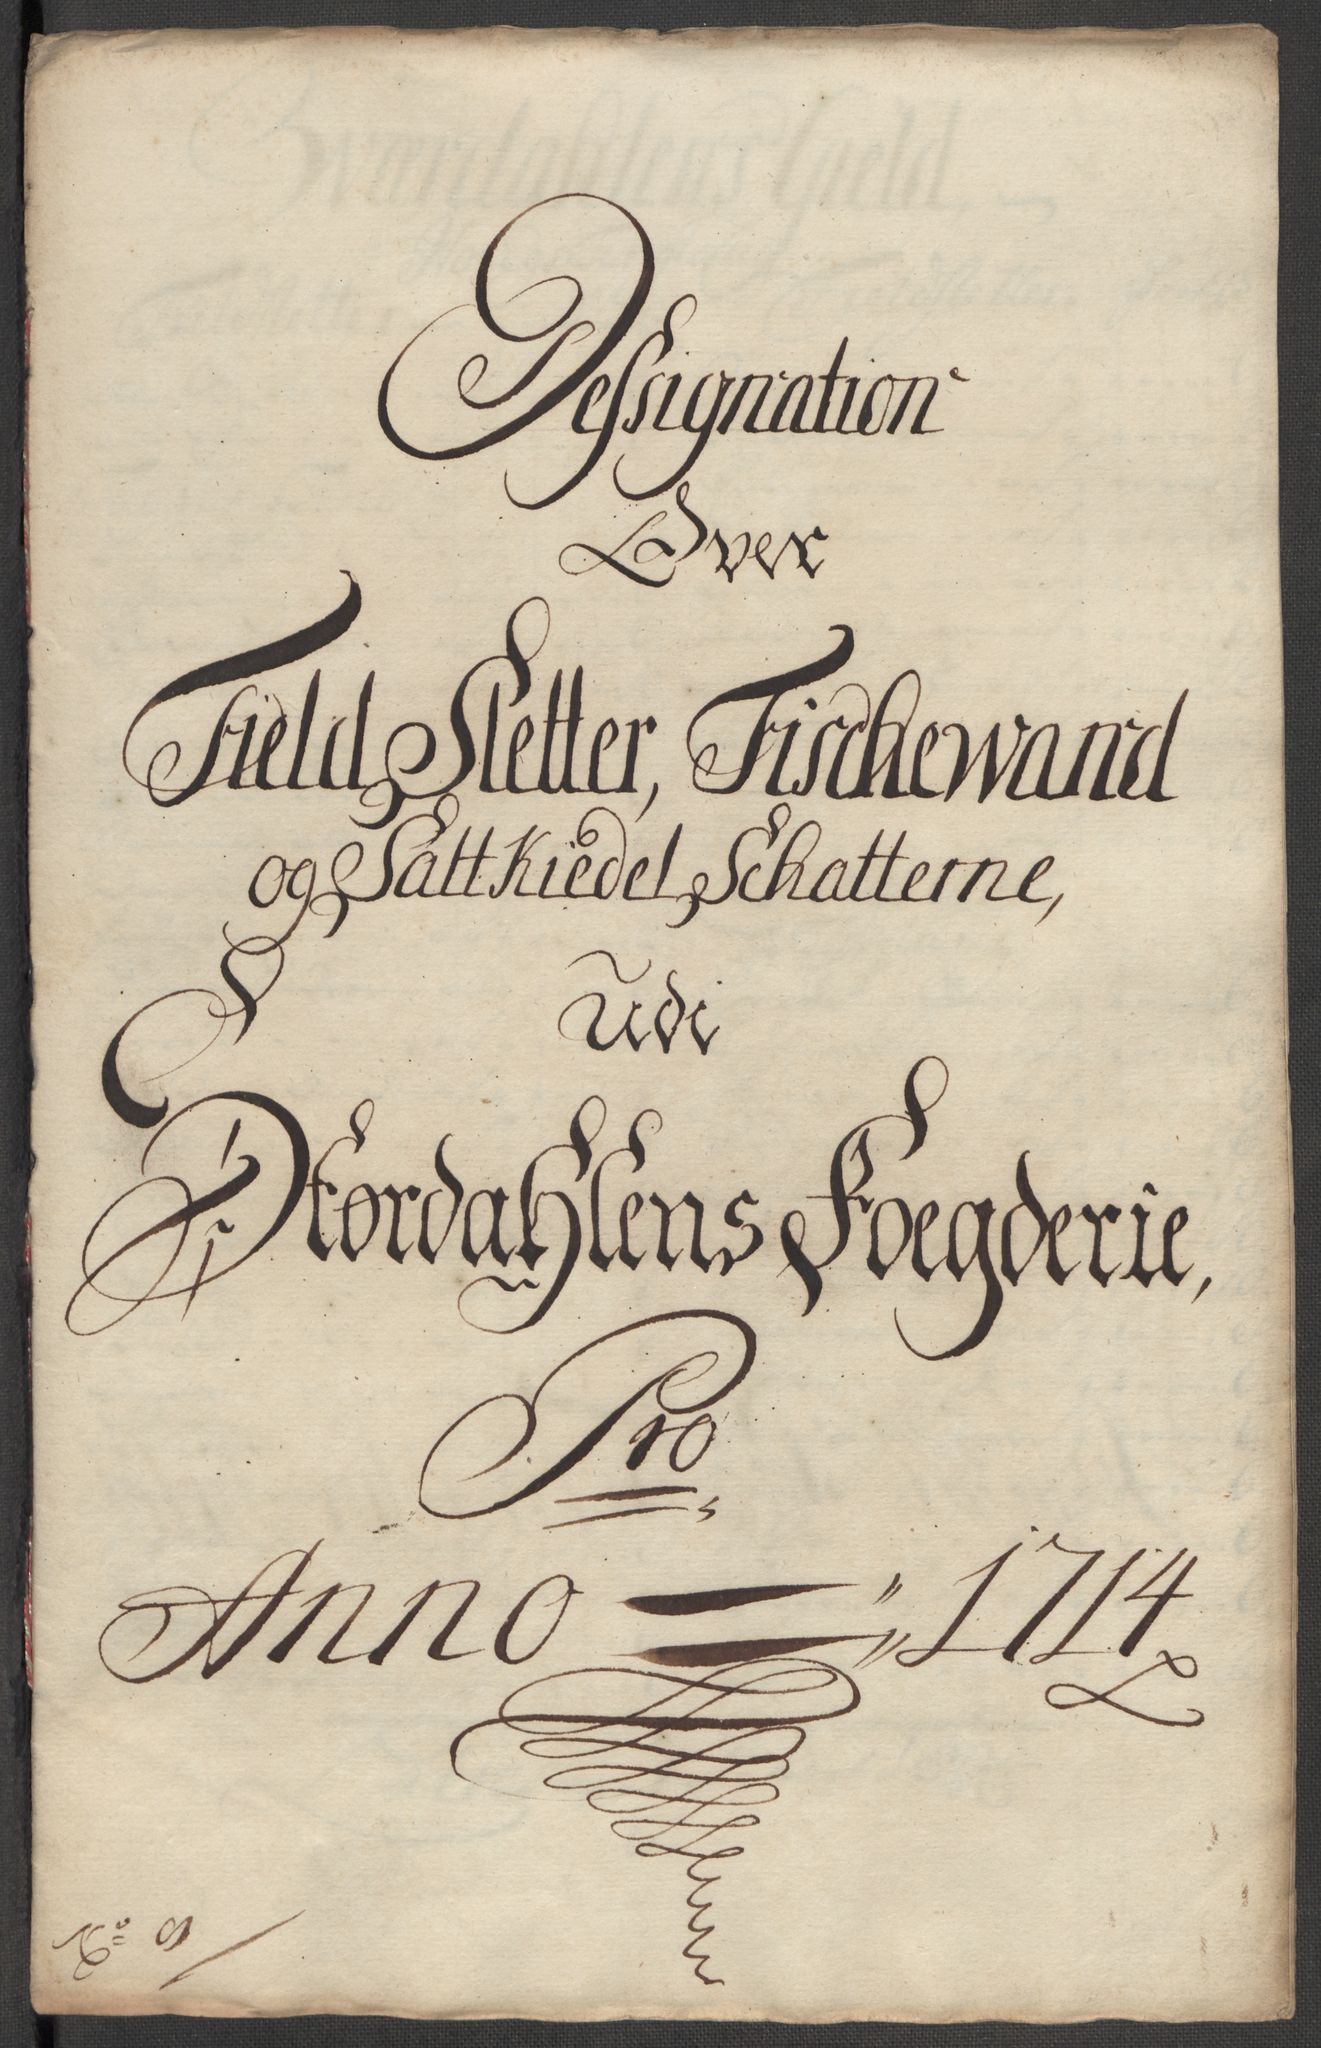 Dessignation
Over
Field Sletter, Fischewand
og Saltkiedel Schatterne,
Udi
Størdahlens Foegderie,
Pro
Anno 1714